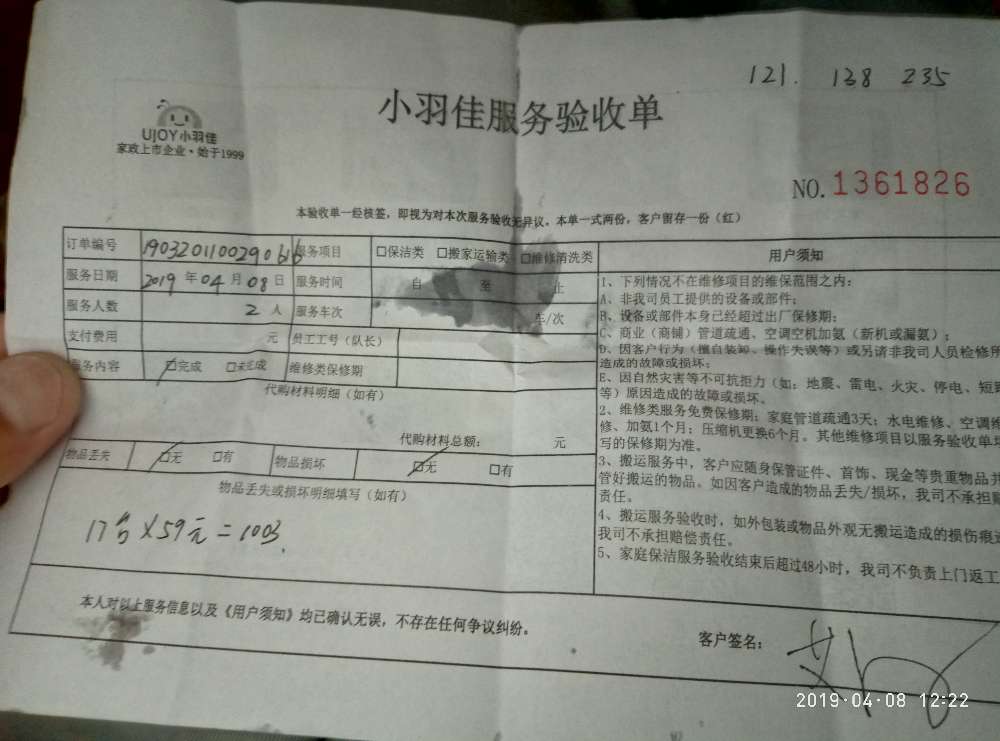 121. 138 235
UJOY小羽佳
家政上市企业·始于1999
小羽佳服务验收单
NO.1361826
本验收单一经核签，即视为对本次服务验收无异议。本单一式两份，客户留存一份（红）
订单编号 服务项目 □保洁类 □搬家运输类 □维修清洗类
服务日期 2019年04月08日 服务时间 自 至 止
服务人数 2人 服务车次 车/次
支付费用 元 员工工号（队长）
服务内容 □完成 □未完成 维修类保修期
代购材料明细（如有）
代购材料总额： 元
物品丢失 □无 □有 物品损坏 □无 □有
物品丢失或损坏明细填写（如有）
17台×59元=1003.
用户须知
1、下列情况不在维修项目的维保范围之内：
A、非我司员工提供的设备或部件；
B、设备或部件本身已经超过出厂保修期；
C、商业（商铺）管道疏通、空调空机加氨（新机或漏氨）；
D、因客户行为（擅自装卸、操作失误等）或另请非我司人员检修所
造成的故障或损坏；
E、因自然灾害等不可抗拒力（如：地震、雷电、火灾、停电、短路
等）原因造成的故障或损坏。
2、维修类服务免费保修期：家庭管道疏通3天；水电维修、空调维
修、加氨1个月；压缩机更换6个月。其他维修项目以服务验收单填
写的保修期为准。
3、搬运服务中，客户应随身保管证件、首饰、现金等贵重物品并
管好搬运的物品。如因客户造成的物品丢失/损坏，我司不承担赔
责任。
4、搬运服务验收时，如外包装或物品外观无搬运造成的损伤痕迹
我司不承担赔偿责任。
5、家庭保洁服务验收结束后超过48小时，我司不负责上门返工
本人对以上服务信息以及《用户须知》均已确认无误，不存在任何争议纠纷。
客户签名：
2019·04·08 12:22